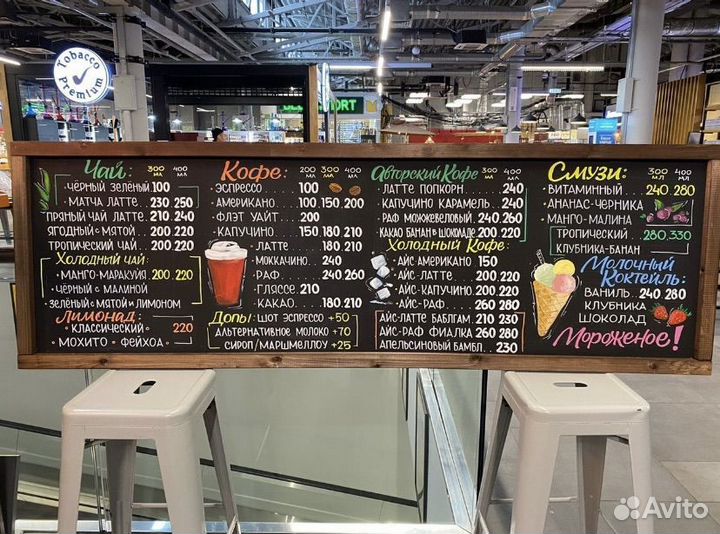 Tobacco
Premium
Чай: 300 мл 400 мл
чёрный зелёный 100
• матча латте. 230 • 250
пряный чай латте. 210 • 240
ягодный • мятой 200 220
тропический чай 200 220
Холодный чай:
• манго-маракуйя 200.220
• чёрный с малиной
зелёный с мятой и лимоном
Лимонад:
• классический • 220
• мохито • фейхоа •
Кофе: 200 мл 300 мл 400 мл
• эспрессо .... 100
• американо ... 100.150.200
• флэт уайт .... 200
• капучино .... 150 180.210
• латте ..... 180.210
моккачино .. 240
• раф ...... 240 260
глясе .. 210
• какао .... 180.210
Допы: шот эспрессо +50
альтернативное молоко +70
сироп/маршмеллоу +25
Авторский Кофе 300 мл 400 мл
• латте попкорн ..... 240
• капучино карамель . 240
• раф можжевеловый . 240.260
какао банан в шоколаде 200.220
Холодный Кофе:
• айс-американо 150
• айс-латте .... 200.220
• айс-капучино . 200 220
• айс-раф ..... 260 280
айс-латте баблгам. 210 230
айс-раф фиалка 260 280
апельсиновый бамбл .. 230
Смузи: 300 мл 400 мл
• витаминный ... 240.280
• ананас-черника
• манго-малина
тропический 280,330
клубника-банан
Молочный
Коктейль:
ваниль.. 240.280
клубника
шоколад
Мороженое!
Avito